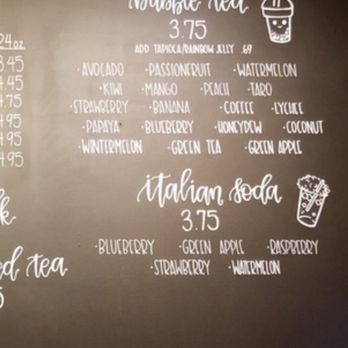 Bubble Tea
3.75
ADD TAPIOCA/RAINBOW JELLY .69
·AVOCADO ·PASSIONFRUIT ·WATERMELON
·KIWI ·MANGO ·PEACH ·TARO
·STRAWBERRY ·BANANA ·COFFEE ·LYCHEE
·PAPAYA ·BLUEBERRY ·HONEYDEW ·COCONUT
·WINTERMELON ·GREEN TEA ·GREEN APPLE
Italian Soda
3.75
·BLUEBERRY ·GREEN APPLE ·RASPBERRY
·STRAWBERRY ·WATERMELON
24oz
3.45
4.45
4.75
4.95
4.95
4.95
k
ed tea